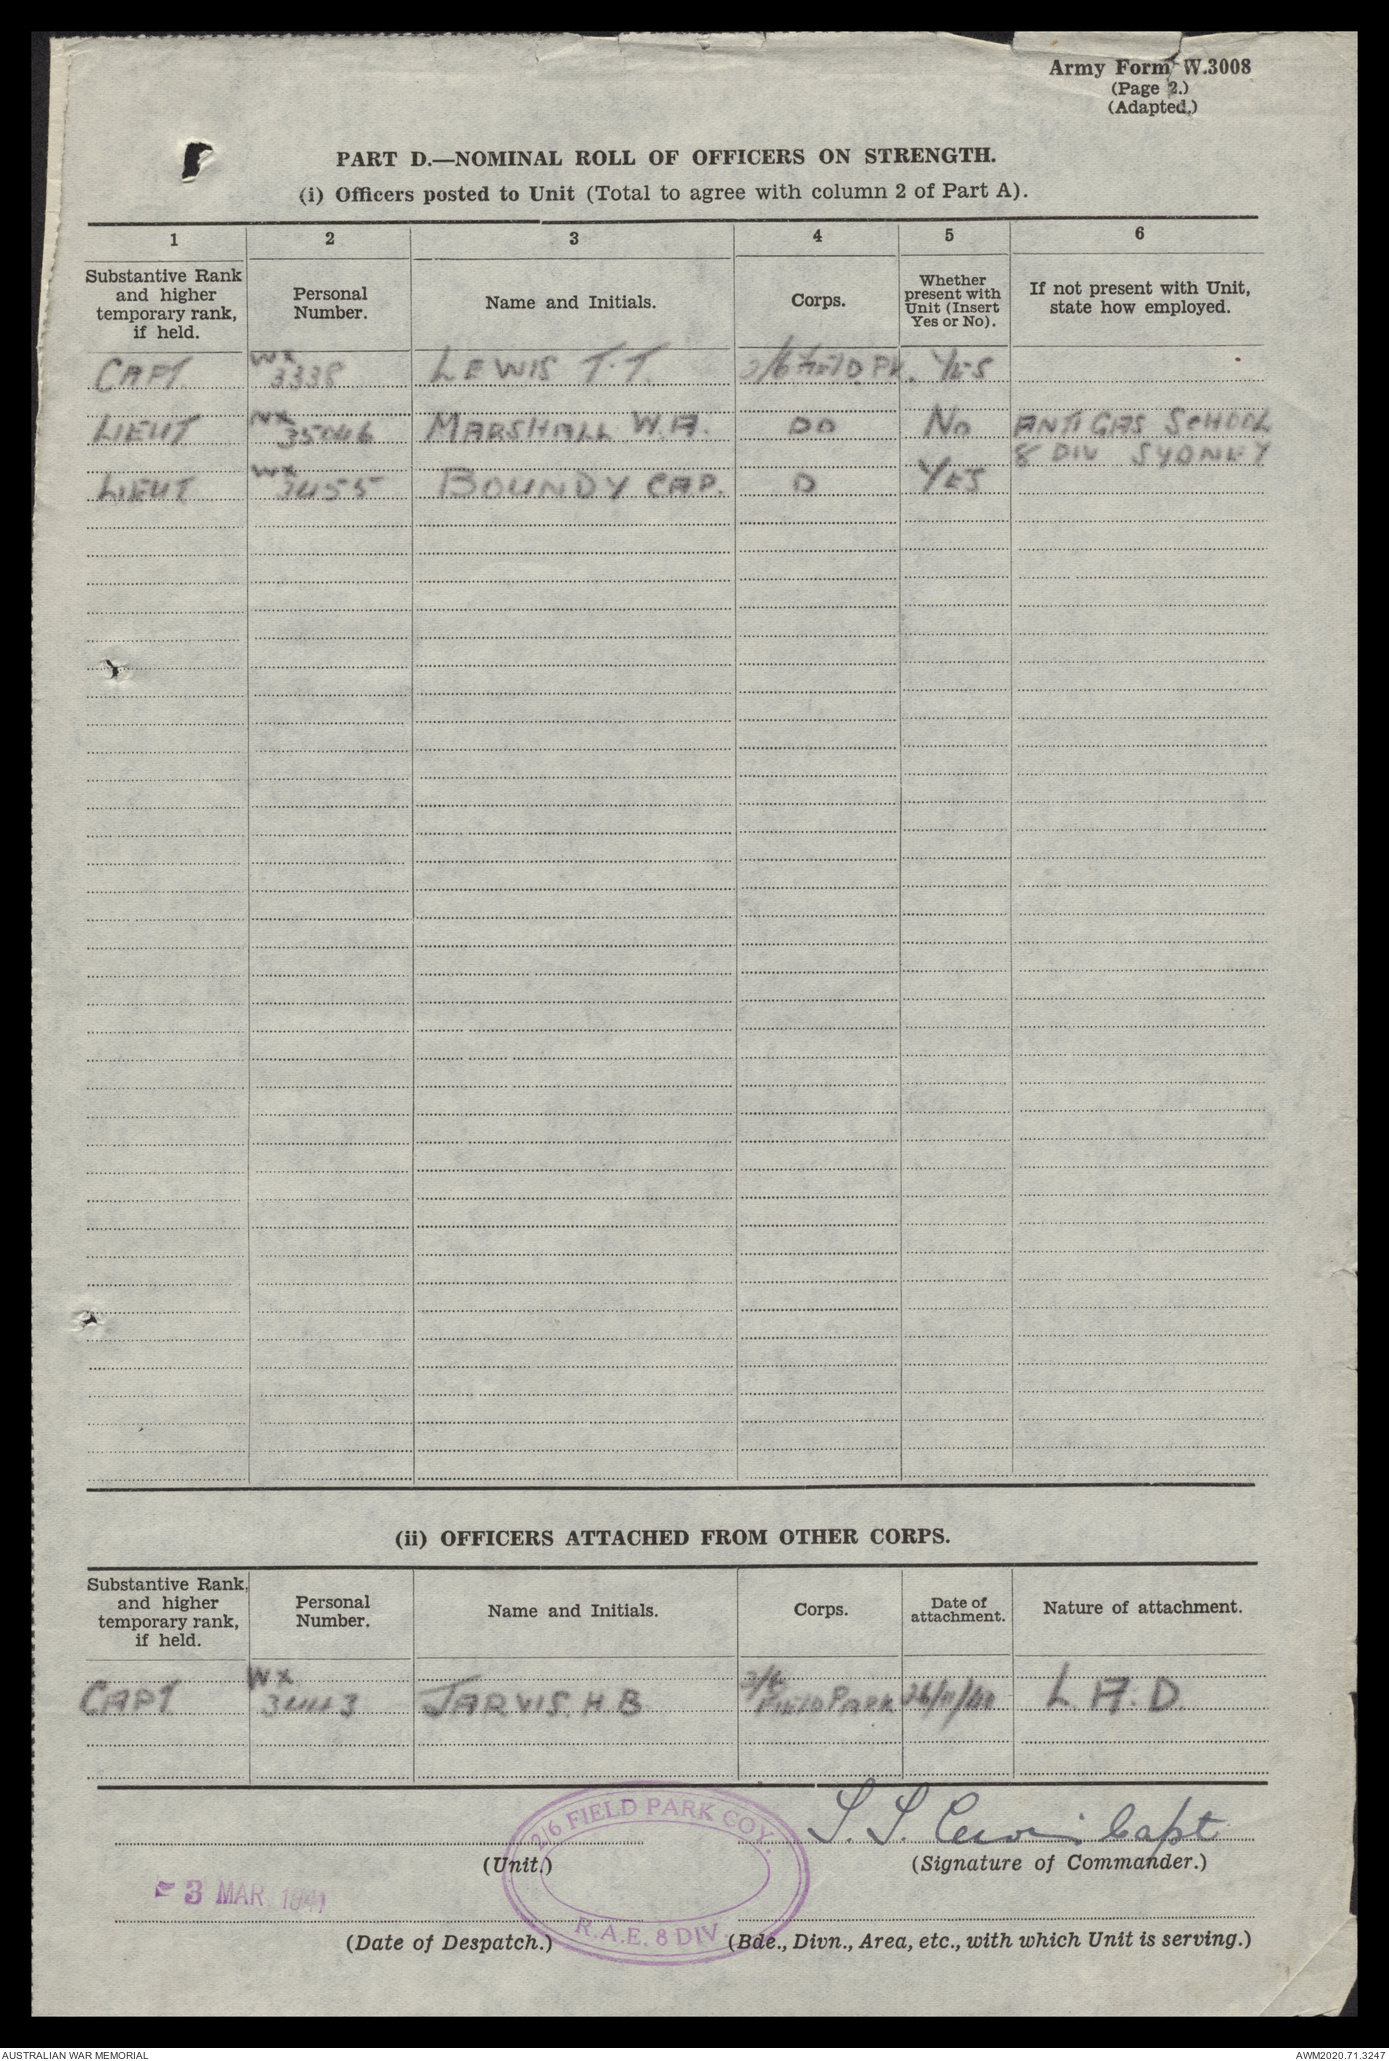 Army Form W.3008
(Page 2.)
(Adapted.)
PART D.—NOMINAL ROLL OF OFFICERS ON STRENGTH.
(i) Officers posted to Unit (Total to agree with column 2 of Part A).
1 2 3 4 5 6
Substantive Rank and higher temporary rank, if held. Personal Number. Name and Initials. Corps. Whether present with Unit (Insert Yes or No). If not present with Unit, state how employed.
CAPT. WX 3338 LEWIS T.T. 2/6 FIELD PK. YES
LIEUT NX 35046 MARSHALL W.A. DO NO ANTI GAS SCHOOL
8 DIV SYDNEY
LIEUT WX 3455 BOUNDY C.A.P. D YES
(ii) OFFICERS ATTACHED FROM OTHER CORPS.
Substantive Rank, and higher temporary rank, if held. Personal Number. Name and Initials. Corps. Date of attachment. Nature of attachment.
CAPT WX 3443 JARVIS. H.B 2/6 FIELD PARK 26/11/40 L.A.D.
2/6 FIELD PARK COY.
R.A.E. 8 DIV.
T. T. Lewis Capt
(Unit.) (Signature of Commander.)
- 3 MAR 1941
(Date of Despatch.) (Bde., Divn., Area, etc., with which Unit is serving.)
AUSTRALIAN WAR MEMORIAL AWM2020.71.3247